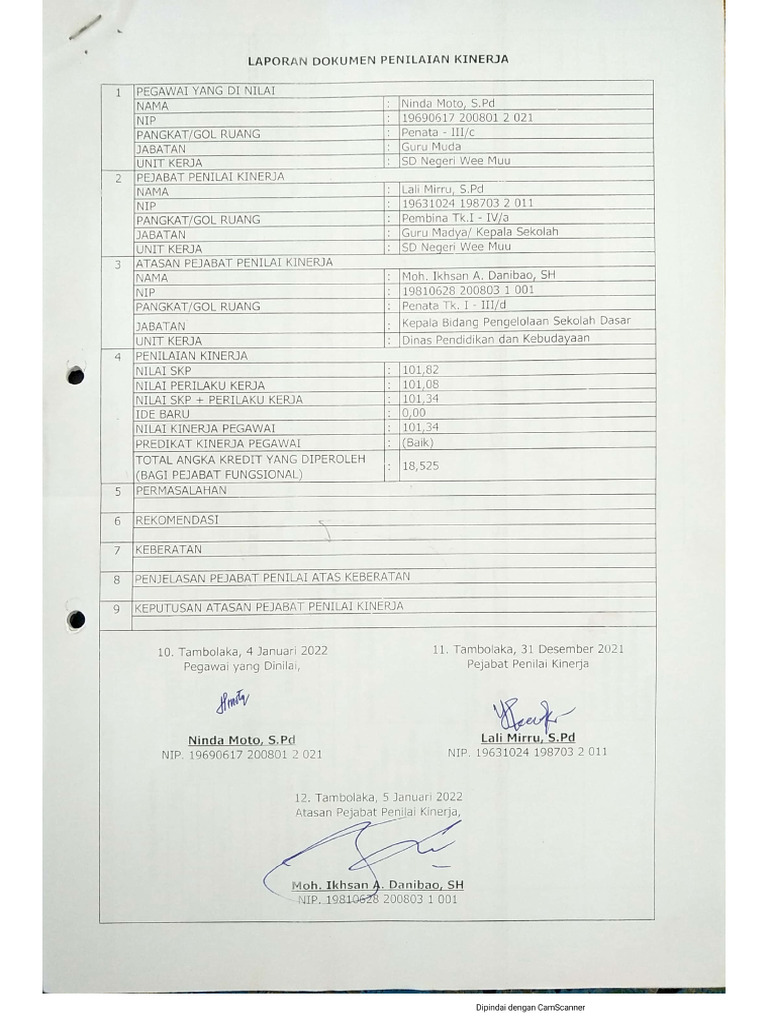 LAPORAN DOKUMEN PENILAIAN KINERJA
1 PEGAWAI YANG DI NILAI
NAMA : Ninda Moto, S.Pd
NIP : 19690617 200801 2 021
PANGKAT/GOL RUANG : Penata - III/c
JABATAN : Guru Muda
UNIT KERJA : SD Negeri Wee Muu
2 PEJABAT PENILAI KINERJA
NAMA : Lali Mirru, S.Pd
NIP : 19631024 198703 2 011
PANGKAT/GOL RUANG : Pembina Tk.I - IV/a
JABATAN : Guru Madya/ Kepala Sekolah
UNIT KERJA : SD Negeri Wee Muu
3 ATASAN PEJABAT PENILAI KINERJA
NAMA : Moh. Ikhsan A. Danibao, SH
NIP : 19810628 200803 1 001
PANGKAT/GOL RUANG : Penata Tk. I - III/d
JABATAN : Kepala Bidang Pengelolaan Sekolah Dasar
UNIT KERJA : Dinas Pendidikan dan Kebudayaan
4 PENILAIAN KINERJA
NILAI SKP : 101,82
NILAI PERILAKU KERJA : 101,08
NILAI SKP + PERILAKU KERJA : 101,34
IDE BARU : 0,00
NILAI KINERJA PEGAWAI : 101,34
PREDIKAT KINERJA PEGAWAI : (Baik)
TOTAL ANGKA KREDIT YANG DIPEROLEH
(BAGI PEJABAT FUNGSIONAL) : 18,525
5 PERMASALAHAN
6 REKOMENDASI
7 KEBERATAN
8 PENJELASAN PEJABAT PENILAI ATAS KEBERATAN
9 KEPUTUSAN ATASAN PEJABAT PENILAI KINERJA
10. Tambolaka, 4 Januari 2022
Pegawai yang Dinilai,
Ninda Moto, S.Pd
NIP. 19690617 200801 2 021
11. Tambolaka, 31 Desember 2021
Pejabat Penilai Kinerja
Lali Mirru, S.Pd
NIP. 19631024 198703 2 011
12. Tambolaka, 5 Januari 2022
Atasan Pejabat Penilai Kinerja,
Moh. Ikhsan A. Danibao, SH
NIP. 19810628 200803 1 001
Dipindai dengan CamScanner